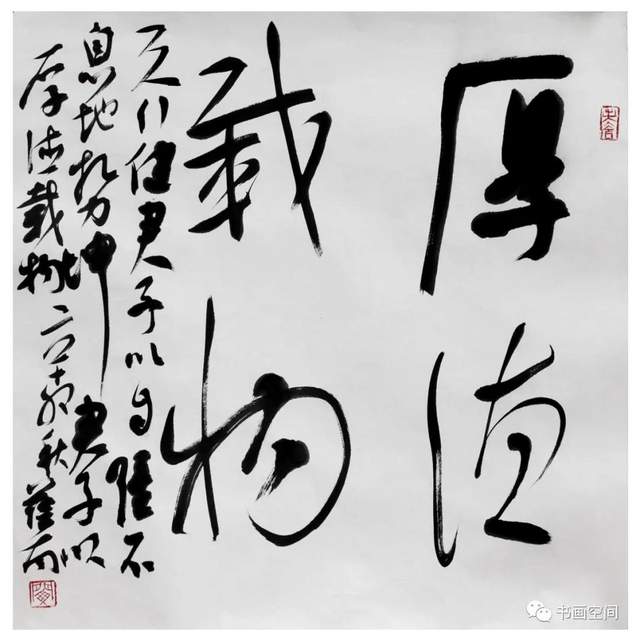 厚德
載物
天行健君子以自强不
息地势坤君子以
厚德載物二〇秋
书画空间